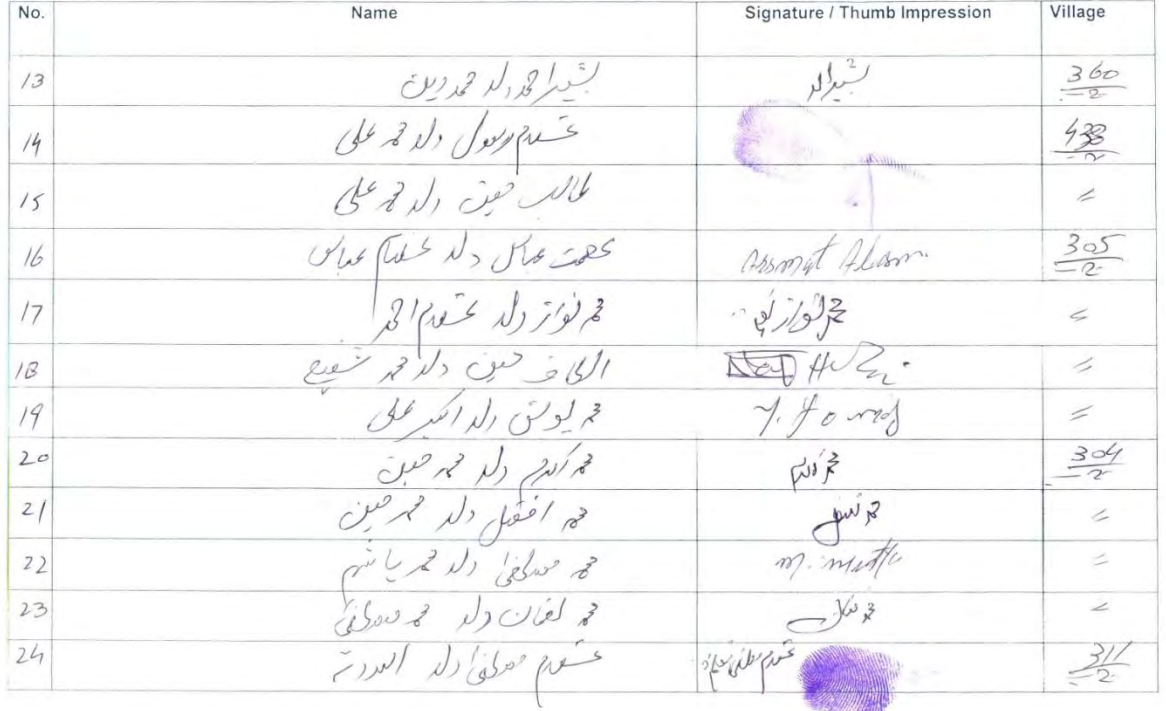 No. Name Signature / Thumb Impression Village
13 بشیر احمد ولد محمد دین 360/2
14 غلام رسول ولد محمد علی 438/2
15 طالب حسین ولد محمد علی 〃
16 عصمت عباس ولد غلام عباس Assmat 305/2
17 محمد نواز ولد غلام احمد محمد نواز 〃
18 الطاف حسین ولد محمد شفیع 〃
19 محمد یونس ولد اکبر علی 〃
20 محمد اکرم ولد محمد حسین محمد اکرم 304/2
21 محمد افضل ولد محمد حسین 〃
22 محمد مصطفیٰ ولد محمد ہاشم 〃
23 محمد لقمان ولد محمد مصطفیٰ 〃
24 غلام مصطفیٰ ولد اللہ دتہ غلام مصطفیٰ 311/2